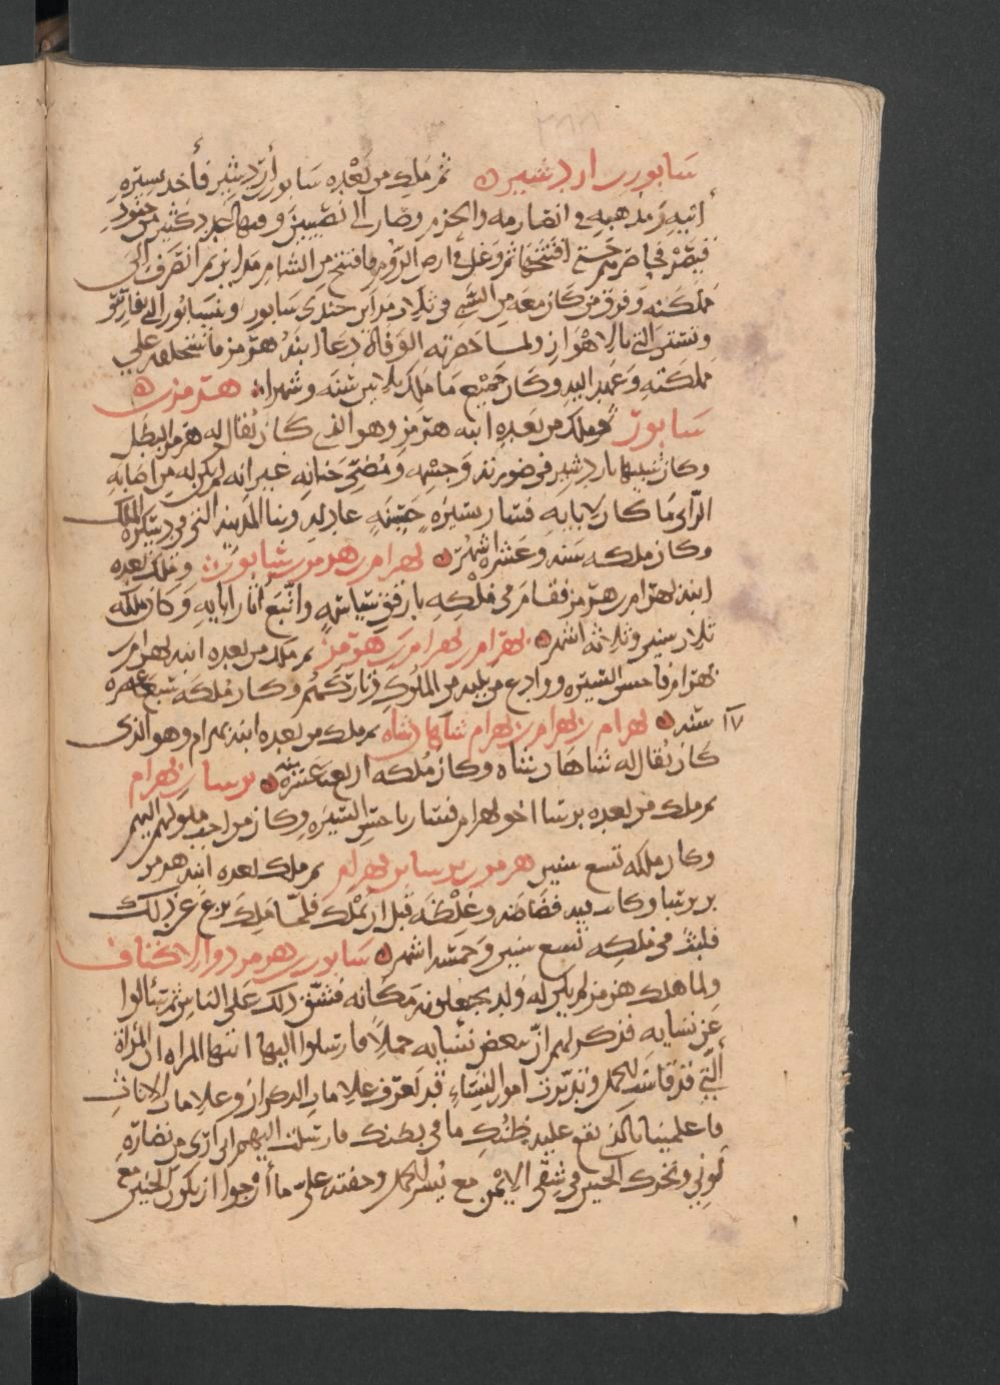 سابور بن اردشير ثم ملك من بعده سابور أردشير فأخذ بسيرة
ابيه ومذهبه في انصارمه والحزم وصار الى نصيبين وفيها عدد كثير من جنود
قيصر فحاصرهم حتى افتتحها ثم وغل في أرض الروم فافتتح من الشام مداين ثم انصرف الى
مملكته وفرق من كان معه من السبي في بلاد مداين جندي سابور ونيسابور التي بفارس
وتستر التي بالاهواز ولما حضرته الوفاة دعا ابنه هرمز فاستخلفه على
مملكته وعهد اليه وكان جميع ما ملك ثلاثين سنة وشهرا هرمز بن
سابور ثم ملك من بعده ابنه هرمز وهو الذى كان يقال له هرمز البطل
وكان شبيها باردشير في صورته وجسمه ومضى جنانه غير انه لم يكن له من اصابة
الرأى ما كان لابايه فسار سيرة حسنة عادلة وبنا المدينة التي في دسكرة الملك
وكان ملكه سنه وعشرة اشهر بهرام بن هرمز بن سابور وملك بعده
ابنه بهرام بن هرمز فقام في ملكه بارفق سياسة واتبع أثار ابايه وكان ملكه
ثلاث سنين وثلاثة اشهر بهرام بن بهرام بن هرمز ثم ملك من بعده ابنه بهرام بن
بهرام فاحسن السيرة ووادع من يليه من الملوك وتاركهم وكان ملكه سبع عشره
١٧ سنه بهرام بن بهرام بن بهرام شاهان شاه ثم ملك من بعده ابنه بهرام وهو الذى
كان يقال له شاهان شاه وكان ملكه اربع عشرة سنه نرسا بن بهرام
ثم ملك من بعده نرسا اخو بهرام فسار باحسن السيرة وكان من احب ملوكهم اليهم
وكان ملكه تسع سنين هرمز بن نرسا بن بهرام ثم ملك بعده ابنه هرمز
بن نرسا وكان فيه فضاضة وغلظة قبل ان يملك فلما ملك نزع عن ذلك
فلبث في ملكه تسع سنين وخمسة اشهر سابور بن هرمز ذو الاكتاف
ولما هلك هرمز لم يكن له ولد يجعلونه مكانه فشق ذلك على الناس ثم سألوا
عن نسايه فذكر لهم ان ببعض نسايه حملا فارسلوا اليها ايتها المراه ان المرأة
التي قد قاست الحمل وتدبرت امور النساء قد تعرف علامات الذكران وعلامات الاناث
فاعلمينا بالذى يقع عليه ظنك ما في بطنك فارسلت اليهم انى ارى من نضارة
لوني وتحرك الجنين في شقي الايمن مع يسر الحمل وخفته على ما أرجوا ان يكون الجنين مع